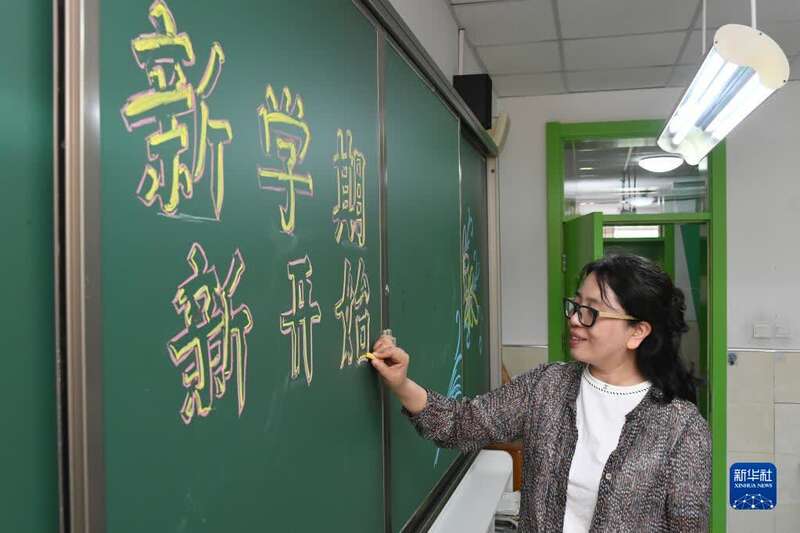 新学期
新开始
新华社
XINHUA NEWS